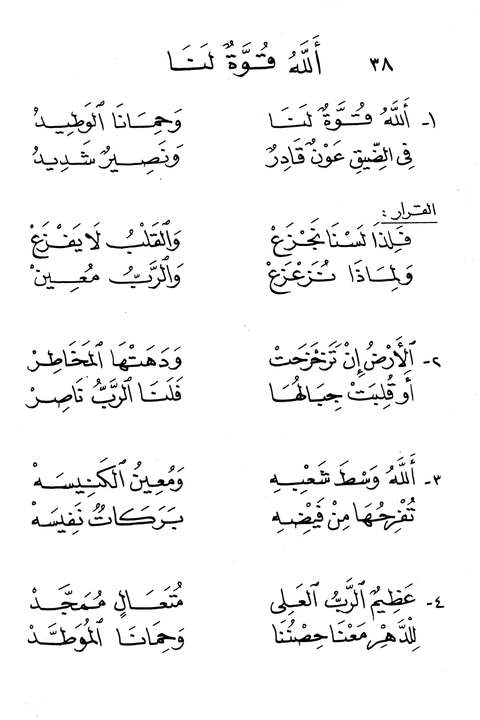 ٣٨ أَللّٰهُ قُوَّةٌ لَنَا
١- أَللّٰهُ قُوَّةٌ لَنَا وَحِمَانَا الْوَطِيدُ
فِي الضِّيقِ عَوْنٌ قَادِرٌ وَنَصِيرٌ شَدِيدُ
القرار:
فَلِذَا لَسْنَا نَجْزَعْ وَالْقَلْبُ لَا يَفْزَعْ
وَلِمَاذَا نُزَعْزَعْ وَالرَّبُّ مُعِينْ
٢- اَلْأَرْضُ إِنْ تَزَحْزَحَتْ وَدَهَتْهَا الْمَخَاطِرْ
أَوْ قُلِبَتْ جِبَالُهَا فَلَنَا الرَّبُّ نَاصِرْ
٣- أَللّٰهُ وَسْطَ شَعْبِهِ وَمُعِينُ الْكَنِيسَهْ
تُفْرِحُهَا مِنْ فَيْضِهِ بَرَكَاتٌ نَفِيسَهْ
٤- عَظِيمٌ الرَّبُّ الْعَلِي مُتَعَالٍ مُمَجَّدْ
لِلدَّهْرِ مَعْنَا حِصْنُنَا وَحِمَانَا الْمُوَطَّدْ